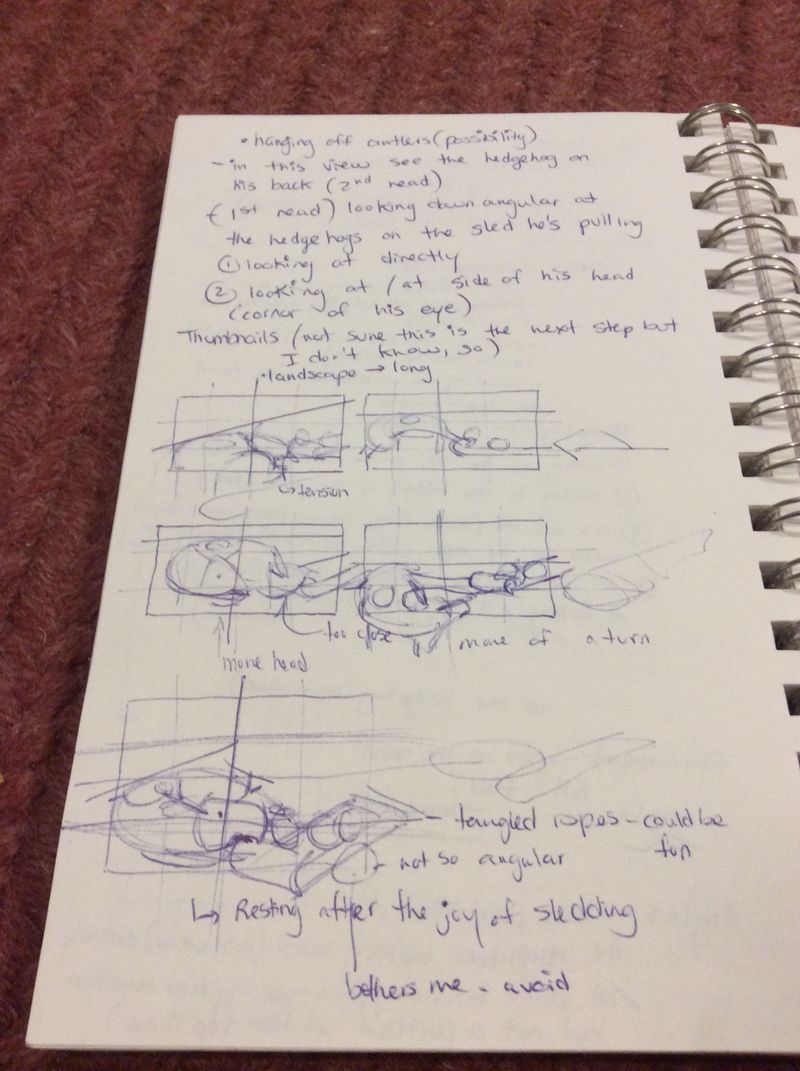 • hanging off antlers (possibility)
- in this view see the hedgehog on
his back (2nd read)
(1st read) looking down angular at
the hedgehogs on the sled he's pulling
① looking at directly
② looking at / at side of his head
(corner of his eye)
Thumbnails (not sure this is the next step but
I don't know, so)
• landscape → long
↳ tension
too close
more of a turn
more head
- tangled ropes - could be
fun
- not so angular
↳ Resting after the joy of sledding
bothers me - avoid